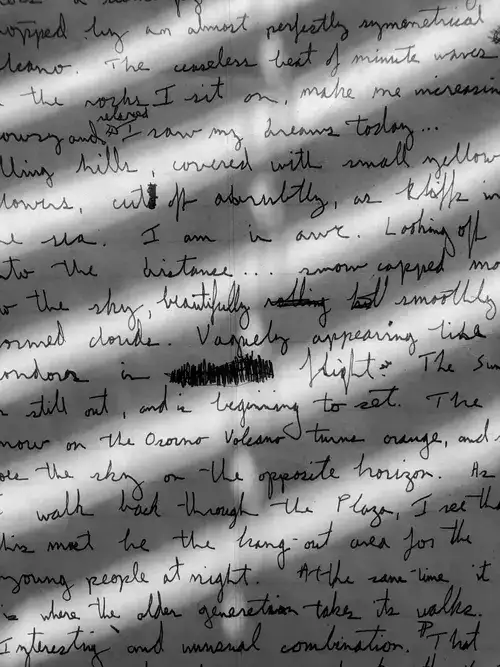 topped by an almost perfectly symmetrical
volcano. The ceaseless beat of minute waves
the rocks I sit on, make me increasin
relaxed
owsy and I saw my dreams today...
lling hills, covered with small yellow
lowers, cut off abruptly, as cliffs in
he sea. I am in awe. Looking off
nto the distance... snow capped mo
the sky, beautifully rolling smoothly
ormed clouds. Vaguely appearing like
ondors in flight. The Sun
still out, and is beginning to set. The
now on the Osorno Volcano turns orange, and
the sky on the opposite horizon. As
I walk back through the Plaza, I see tha
his must be the hang-out area for the
young people at night. At the same-time, it
is where the older generation takes its walks.
Interesting and unusual combination. That